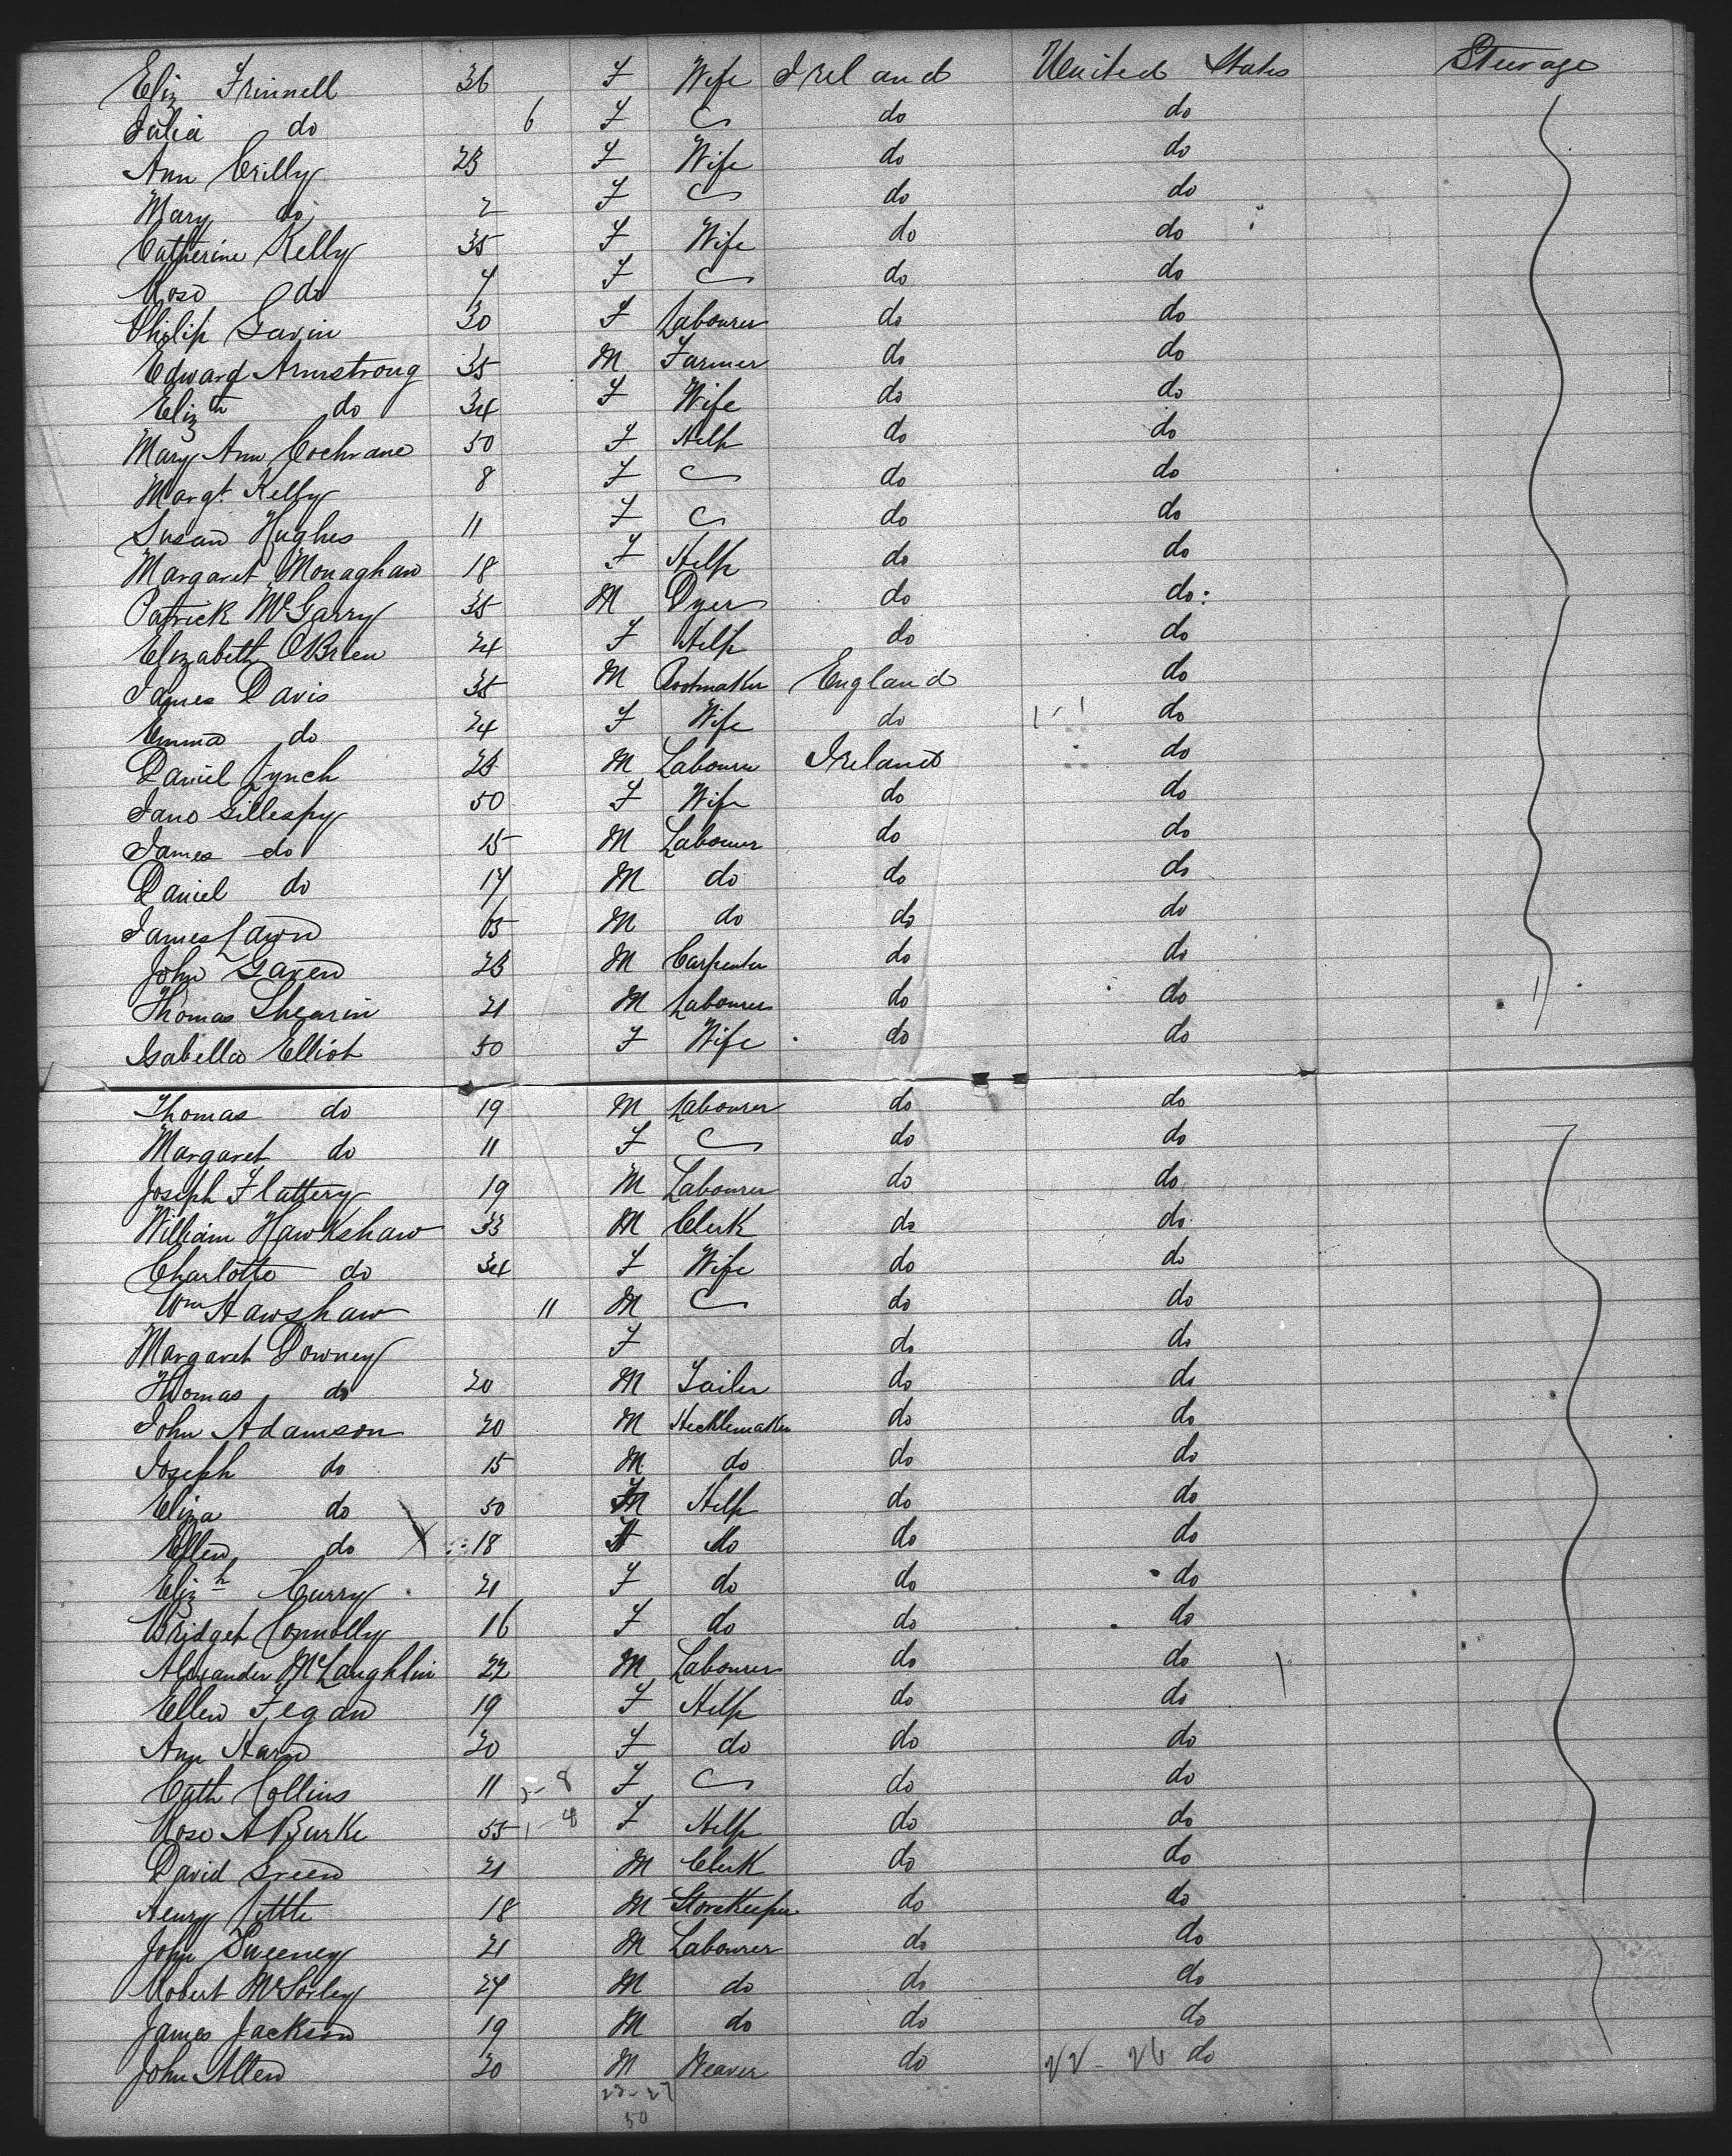 Eliz Frinnell 36 F Wife Ireland United States Steerage
Julia do 6 F C do do
Ann Crilly 23 F Wife do do
Mary do 2 F C do do
Catherine Kelly 35 F Wife do do
Rose do 4 F C do do
Philip Gavin 30 F Labourer do do
Edward Armstrong 35 M Farmer do do
Elizth do 34 F Wife do do
Mary Ann Cochrane 50 F Help do do
Margt Kelly 8 F C do do
Susan Hughes 11 F C do do
Margaret Monaghan 18 F Help do do
Patrick McGarry 35 M Dyer do do
Elizabeth OBrien 24 F Help do do
James Davis 35 M Bootmaker England do
Emma do 24 F Wife do do
Daniel Lynch 23 M Labourer Ireland do
Jane Gillespy 50 F Wife do do
James do 15 M Labourer do do
Daniel do 14 M do do do
James Lawn 65 M do do do
John Gaven 23 M Carpenter do do
Thomas Shearin 21 M Labourer do do
Isabella Elliot 50 F Wife do do
Thomas do 19 M Labourer do do
Margaret do 11 F C do do
Joseph Flattery 19 M Labourer do do
William Hawkshaw 33 M Clerk do do
Charlotte do 34 F Wife do do
Wm Hawshaw 11 M C do do
Margaret Downey F do do
Thomas do 20 M Tailer do do
John Adamson 20 M Hecklemaker do do
Joseph do 15 M do do do
Eliza do 50 Help do do
Ellen do X 18 do do do
Elizh Curry 21 F do do do
Bridget Connolly 16 F do do do
Alexander McLaughlin 22 M Labourer do do
Ellen Fegan 19 F Help do do
Ann Harn 20 F do do do
Cath Collins 11 F C do do
Rose A Burke 55 F Help do do
David Green 21 M Clerk do do
Henry Little 18 M Storekeeper do do
John Sweeney 21 M Labourer do do
Robert McSorley 24 M do do do
James Jackson 19 M do do do
John Allen 20 M Weaver do 22-26 do
23-27
50